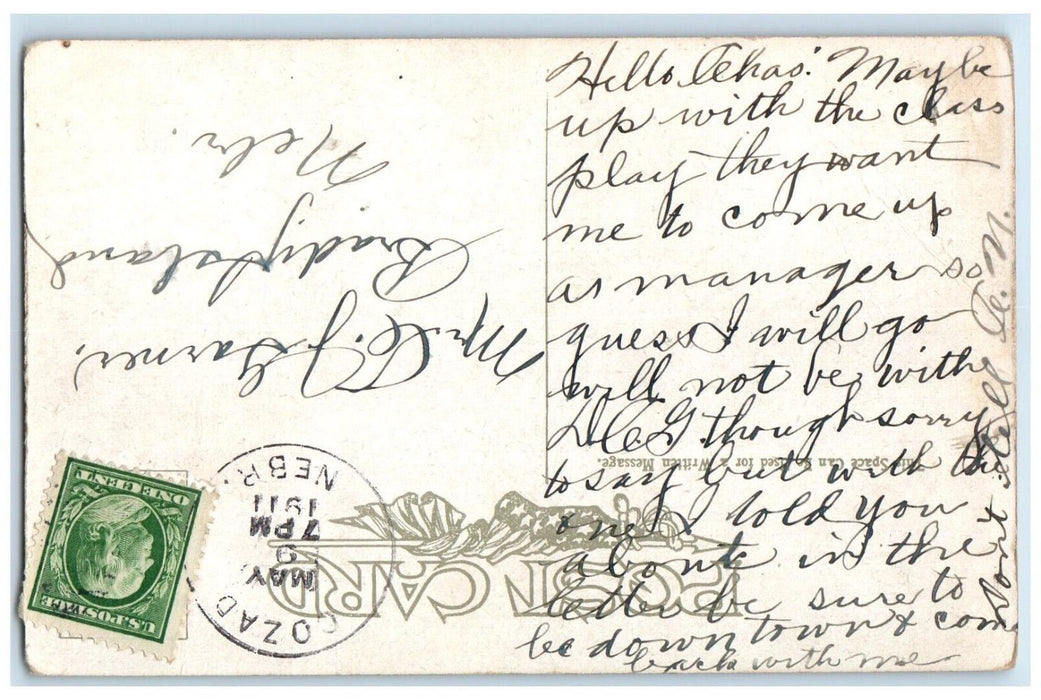 Hello Chas. Maybe
up with the class
play they want
me to come up
as manager so
guess I will go
will not be with
D.C.G. though sorry
to say but with the
one I told you
about in the
letter be sure to
be down town & come
back with me
Don't
Mr. C. J. Garner,
Brady Island
Nebr.
POST CARD
This Space Can Be Used for a Written Message.
COZAD
NEBR.
MAY
9
7 PM
1911
U.S. POSTAGE
ONE CENT